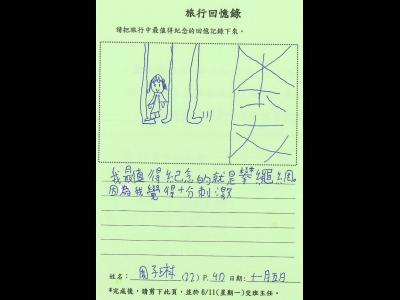 旅行回憶錄
請把旅行中最值得紀念的回憶記錄下來。
我最值得紀念的就是攀繩網。
因為我覺得十分刺激
姓名: 周子琳 (22) P. 4D 日期: 十一月五日
*完成後,請剪下此頁,並於 6/11(星期一)交班主任。